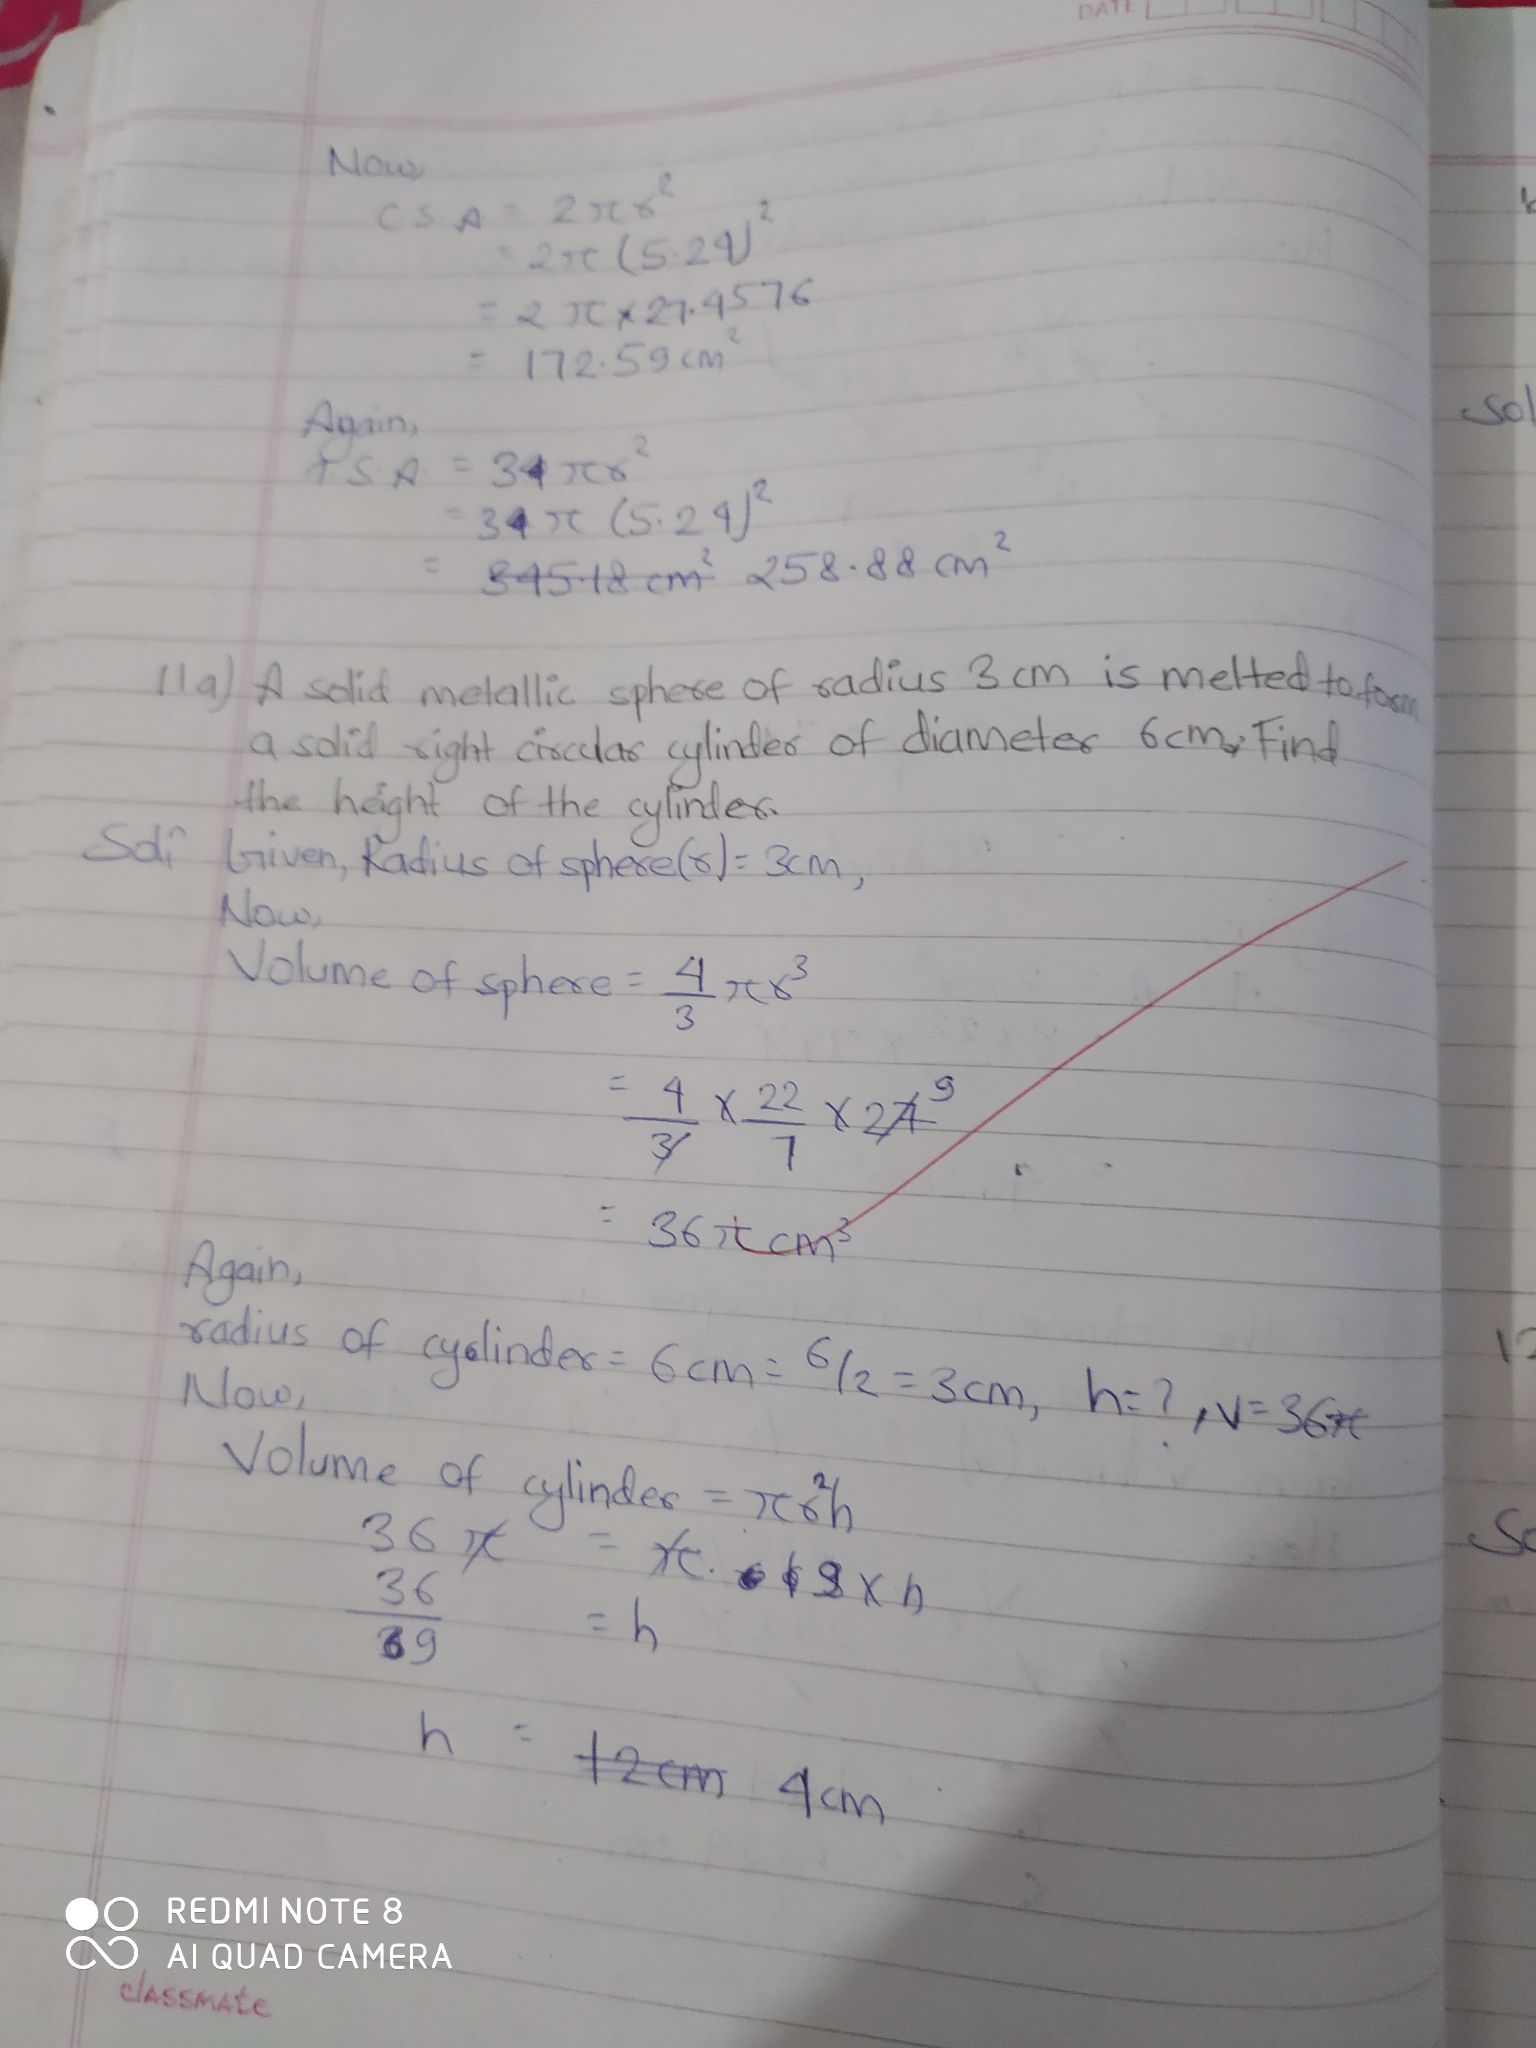 DATE
Now,
CSA = 2πr²
= 2π (5.24)²
= 2π × 27.4576
= 172.59 cm²
Again,
T.S.A. = 3πr²
= 3π (5.24)²
= 345.18 cm² 258.88 cm²
11a) A solid metallic sphere of radius 3 cm is melted to form
a solid right circular cylinder of diameter 6cm. Find
the height of the cylinder.
Given, Radius of sphere(r) = 3cm,
Now,
Volume of sphere = 4/3 πr³
= 4/3 × 22/7 × 27 9
= 36π cm³
Again,
radius of cyclinder = 6cm = 6/2 = 3cm, h = ?, V = 36π
Now,
Volume of cylinder = πr²h
36π = π. 9 × h
36/9 = h
h = 12cm 4cm
REDMI NOTE 8
AI QUAD CAMERA
classmate
Sol
12
So